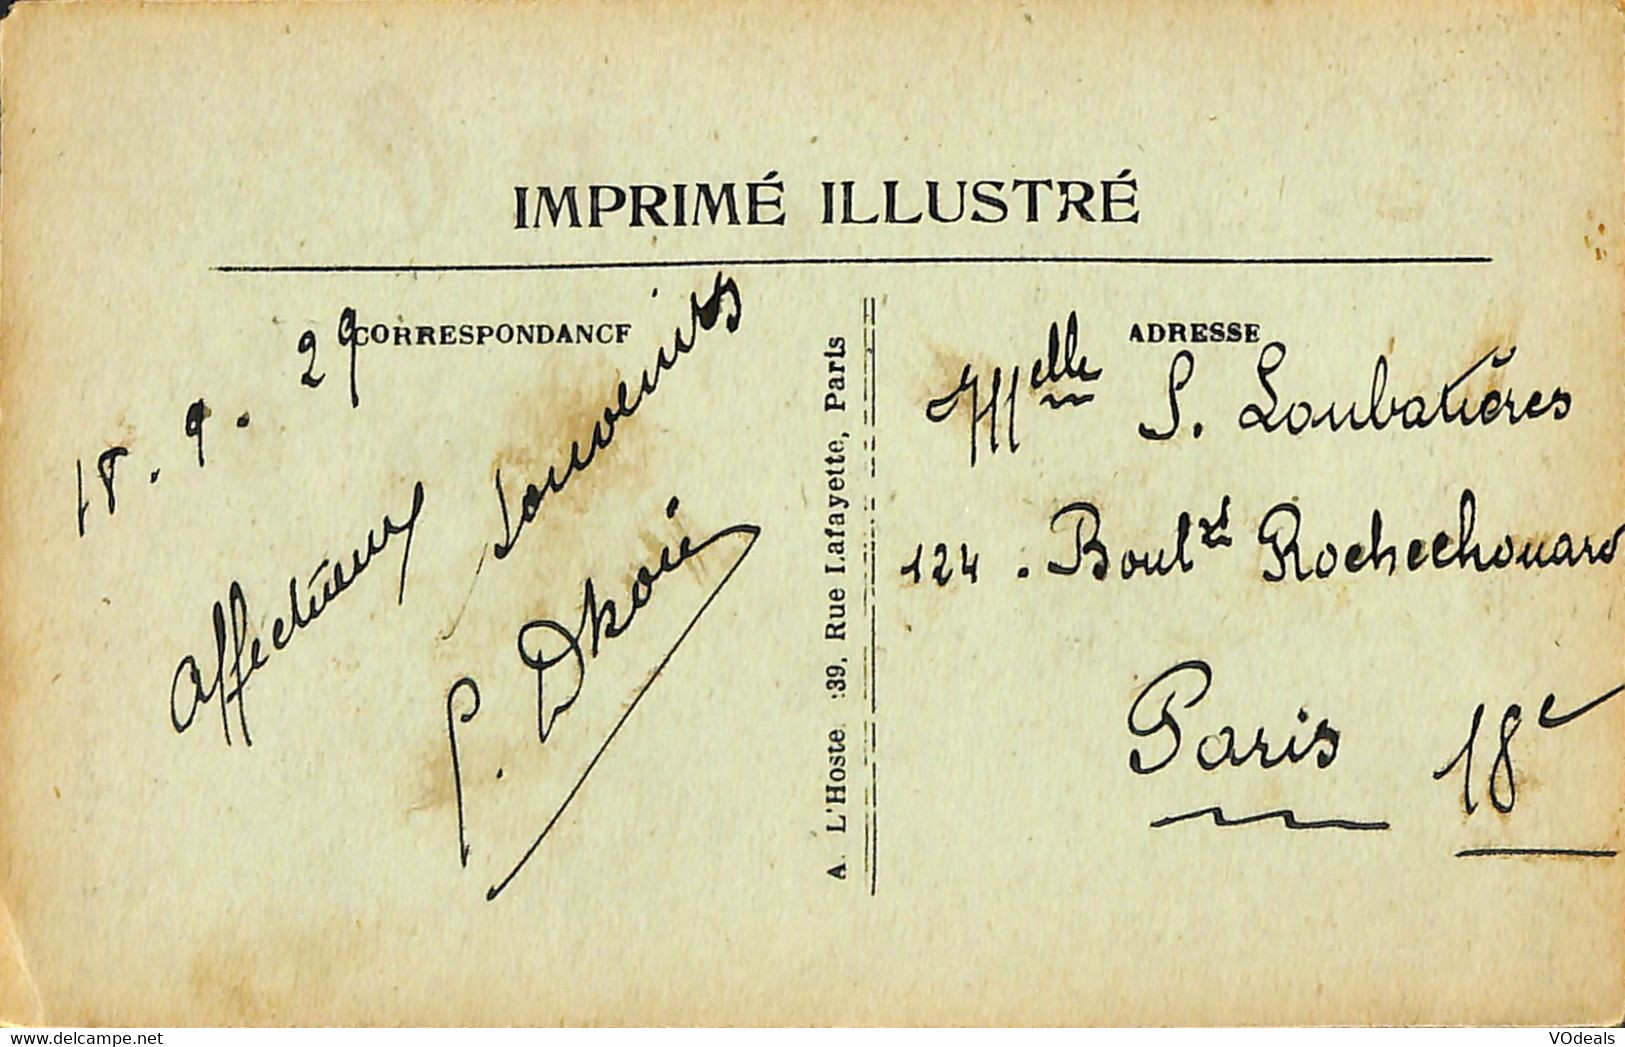 IMPRIMÉ ILLUSTRÉ
CORRESPONDANCE
18. 9. 29
Affectueux souvenirs
A. L'Hoste. 139, Rue Lafayette, Paris
ADRESSE
Melle S. Loubatières
124. Boulrd Rochechouard
Paris 18e
VOdeals